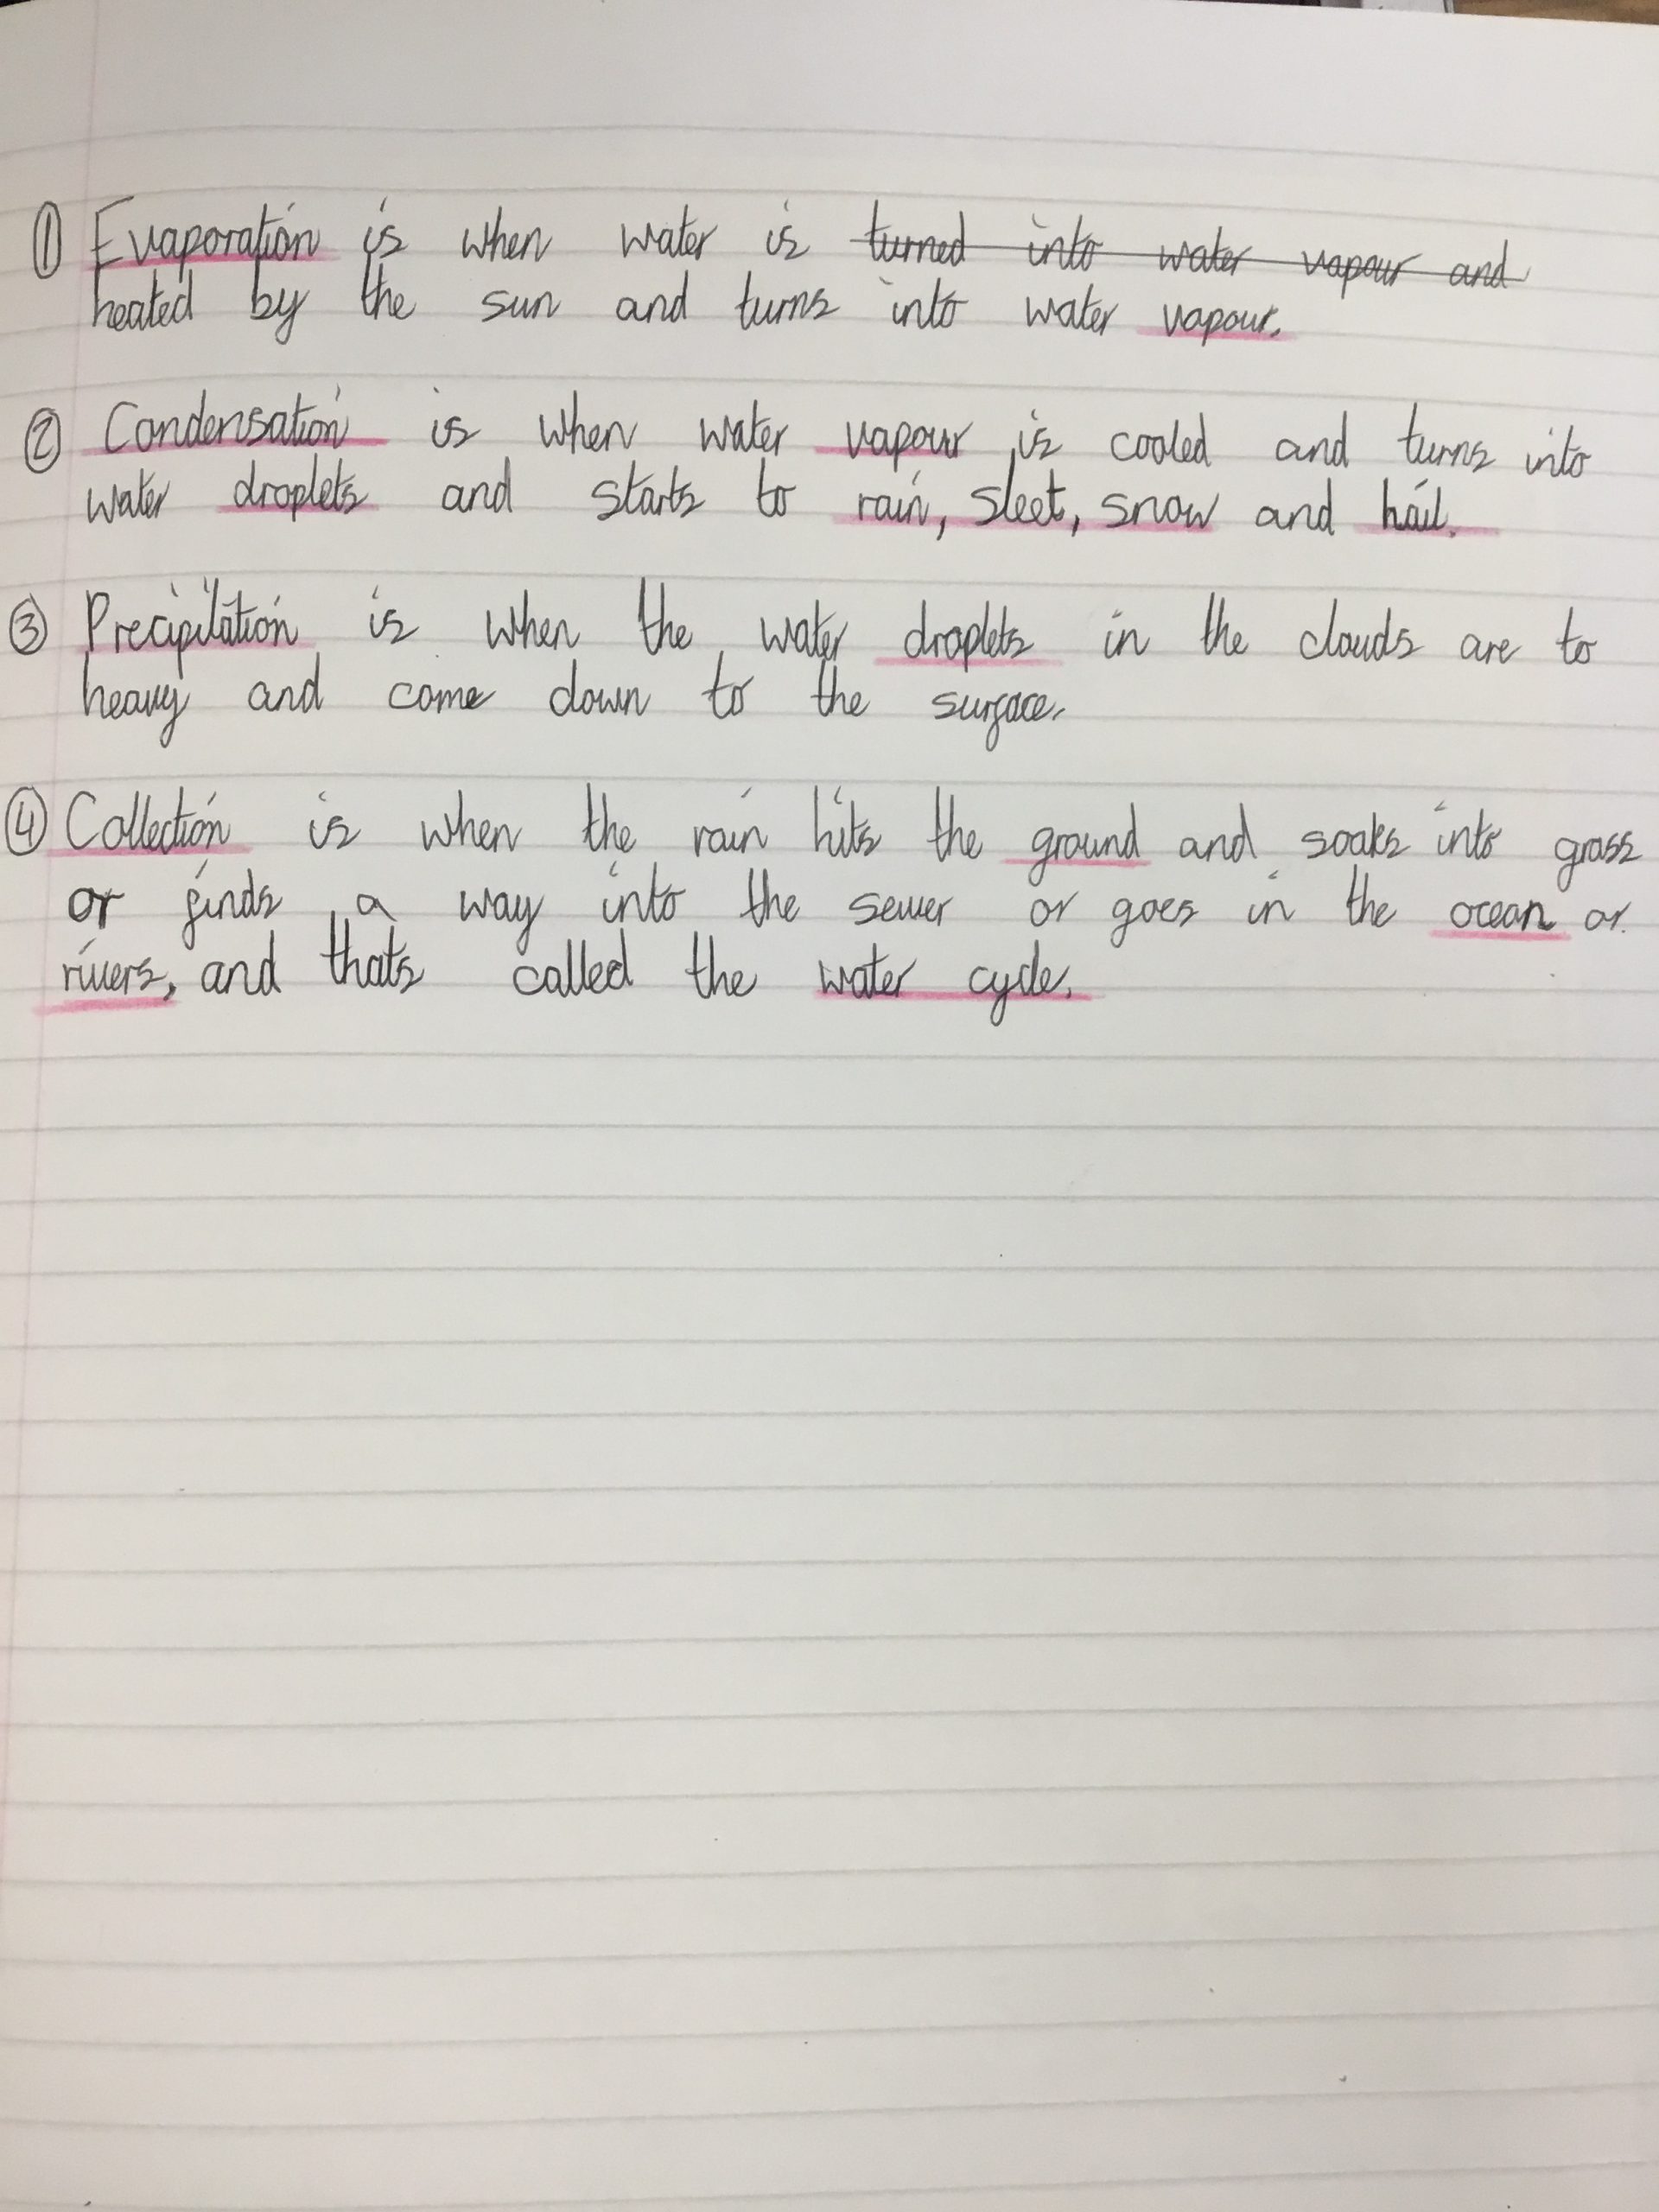 ① Evaporation is when water is turned into water vapour and
heated by the sun and turns into water vapour.
② Condensation is when water vapour is cooled and turns into
water droplets and starts to rain, sleet, snow and hail.
③ Precipitation is when the water droplets in the clouds are to
heavy and come down to the surface.
④ Collection is when the rain hits the ground and soaks into grass
or finds a way into the sewer or goes in the ocean or
rivers, and thats called the water cycle.